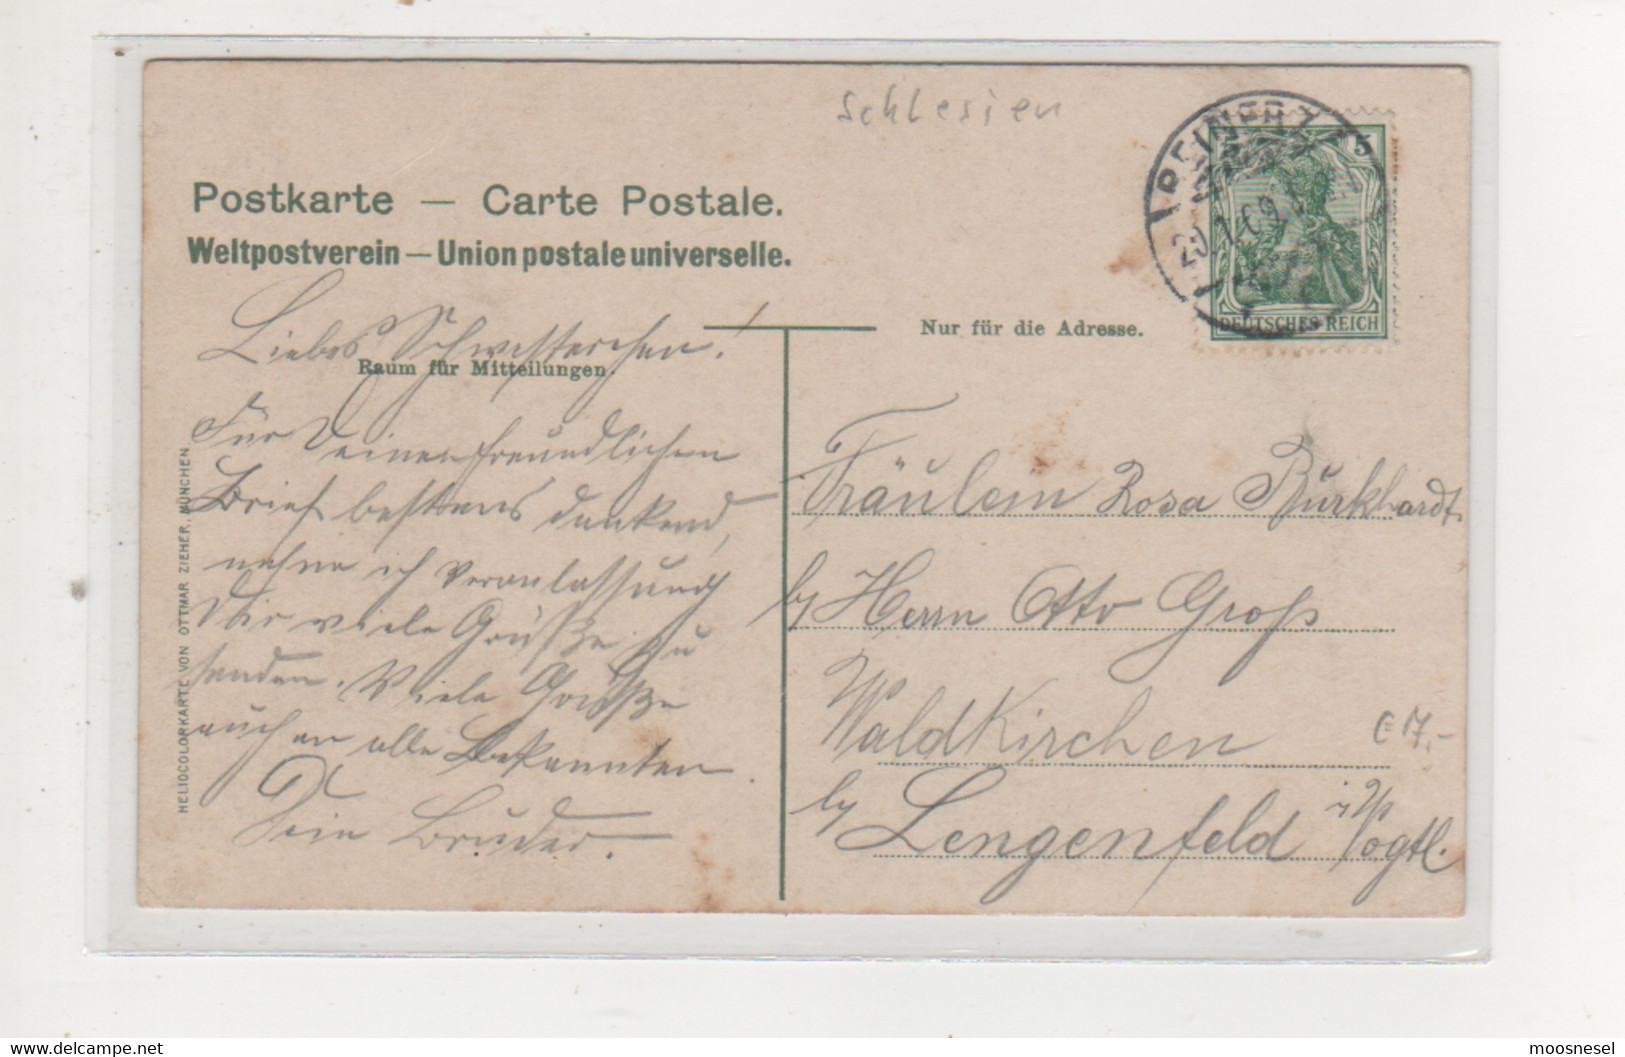 Schlesien
REINERZ
5
DEUTSCHES REICH
Postkarte — Carte Postale.
Weltpostverein — Union postale universelle.
Nur für die Adresse.
Raum für Mitteilungen.
Liebes Schwesterchen!
Für Deinen freundlichen
Brief bestens dankend,
nehme ich Veranlassung
Dir viele Grüße zu
senden. Viele Grüße
auch an alle Bekannten
Dein Bruder.
Fräulein Rosa Burkhardt.
b/ Herrn Otto Groß
Waldkirchen
b/ Lengenfeld i/V
Vogtl.
€ 17.-
HELIOCOLORKARTE VON OTTMAR ZIEHER, MÜNCHEN
www.delcampe.net
moosnesel